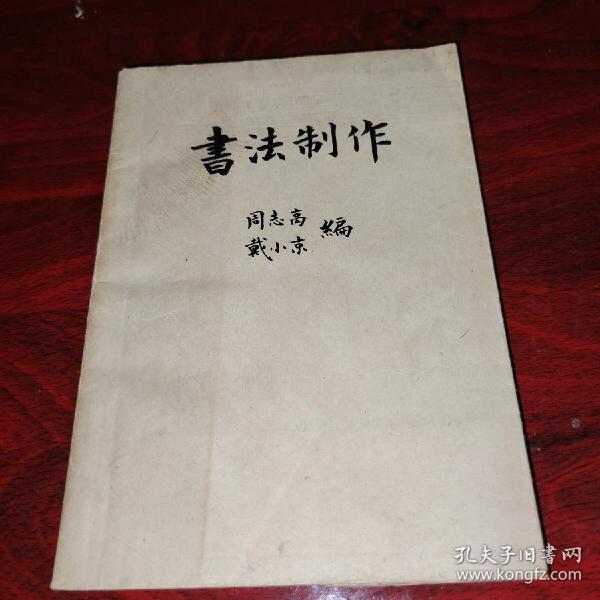 書法制作
周志高
戴小京 編
孔夫子旧書网
www.kongfz.com